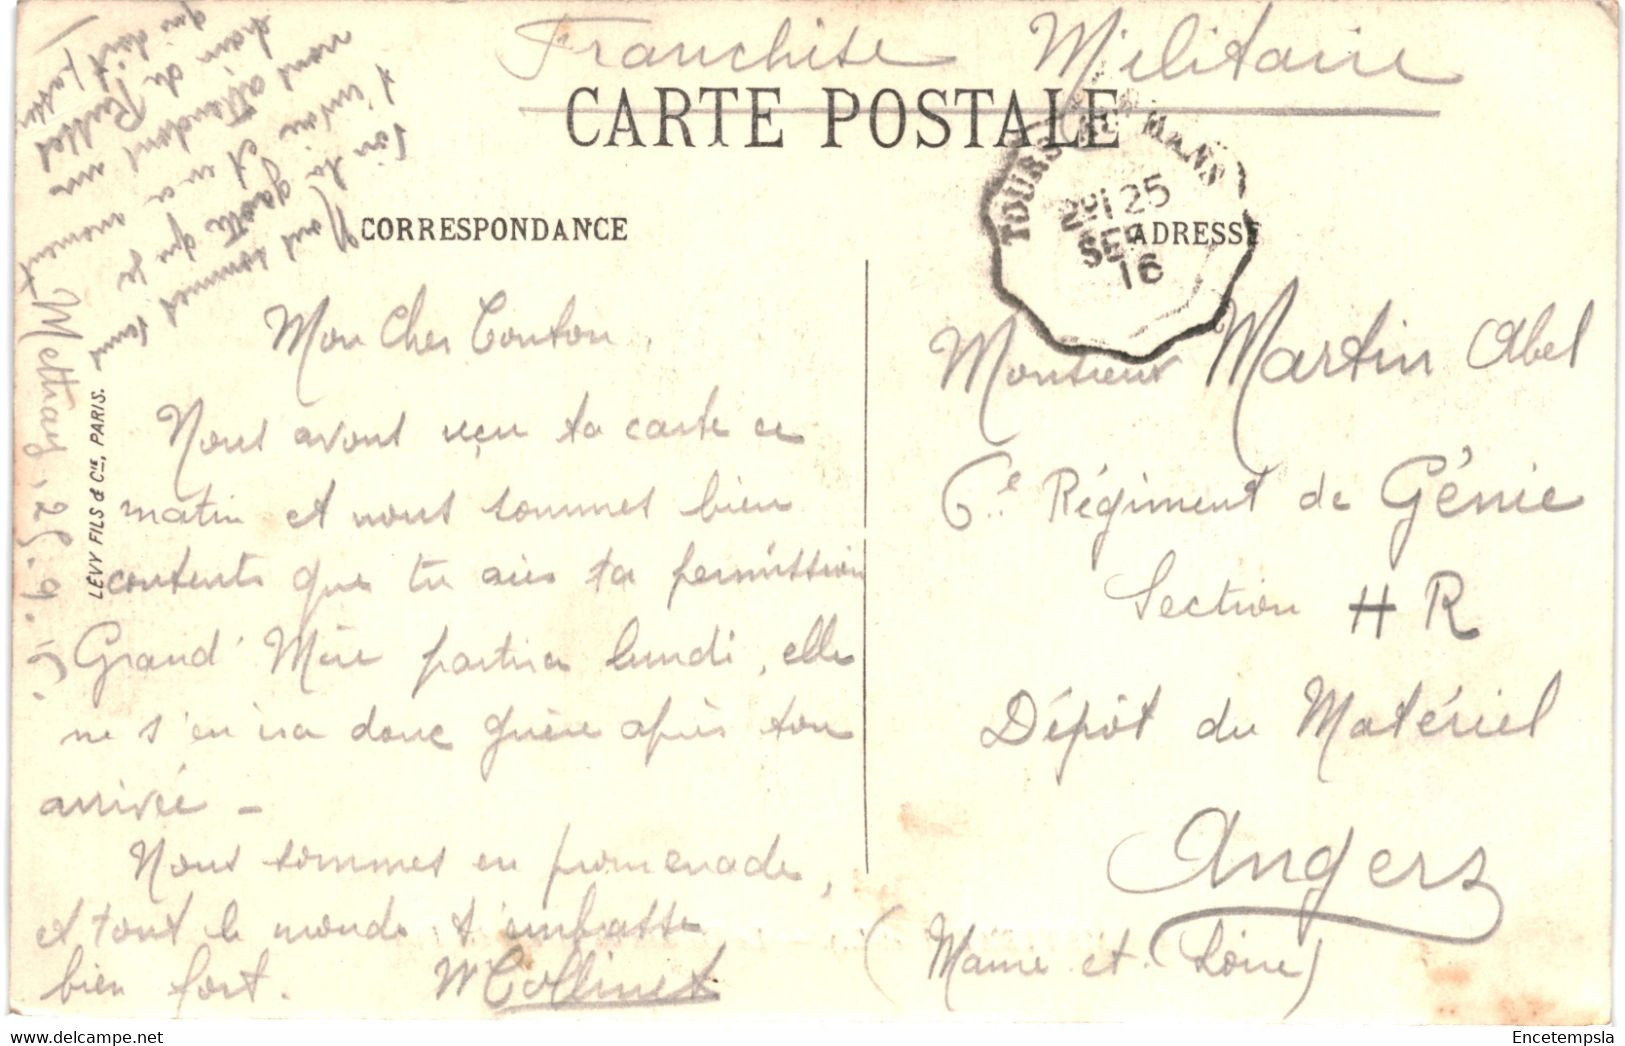 Franchise Militaire
CARTE POSTALE
TOURS AU MANS
25
SEP
16
CORRESPONDANCE
ADRESSE
Mettray, 25.9.16.
Mon Cher Tonton,
Nous avons reçu ta carte ce
matin et nous sommes bien
contents que tu aies ta permission
Grand' Mère partira lundi, elle
ne s'en ira donc guère après ton
arrivée -
Nous sommes en promenade,
et tout le monde t'embrasse
bien fort. M Collinet
Nous sommes sous
que je
t'ecris et en ce moment
nous attendons un
train de
qui doit passer
Monsieur Martin Abel
6e Régiment de Génie
Section H R
Dépôt du Matériel
Angers
(Maine et Loire)
LEVY FILS & Cie, PARIS.
www.delcampe.net
Encetempsla